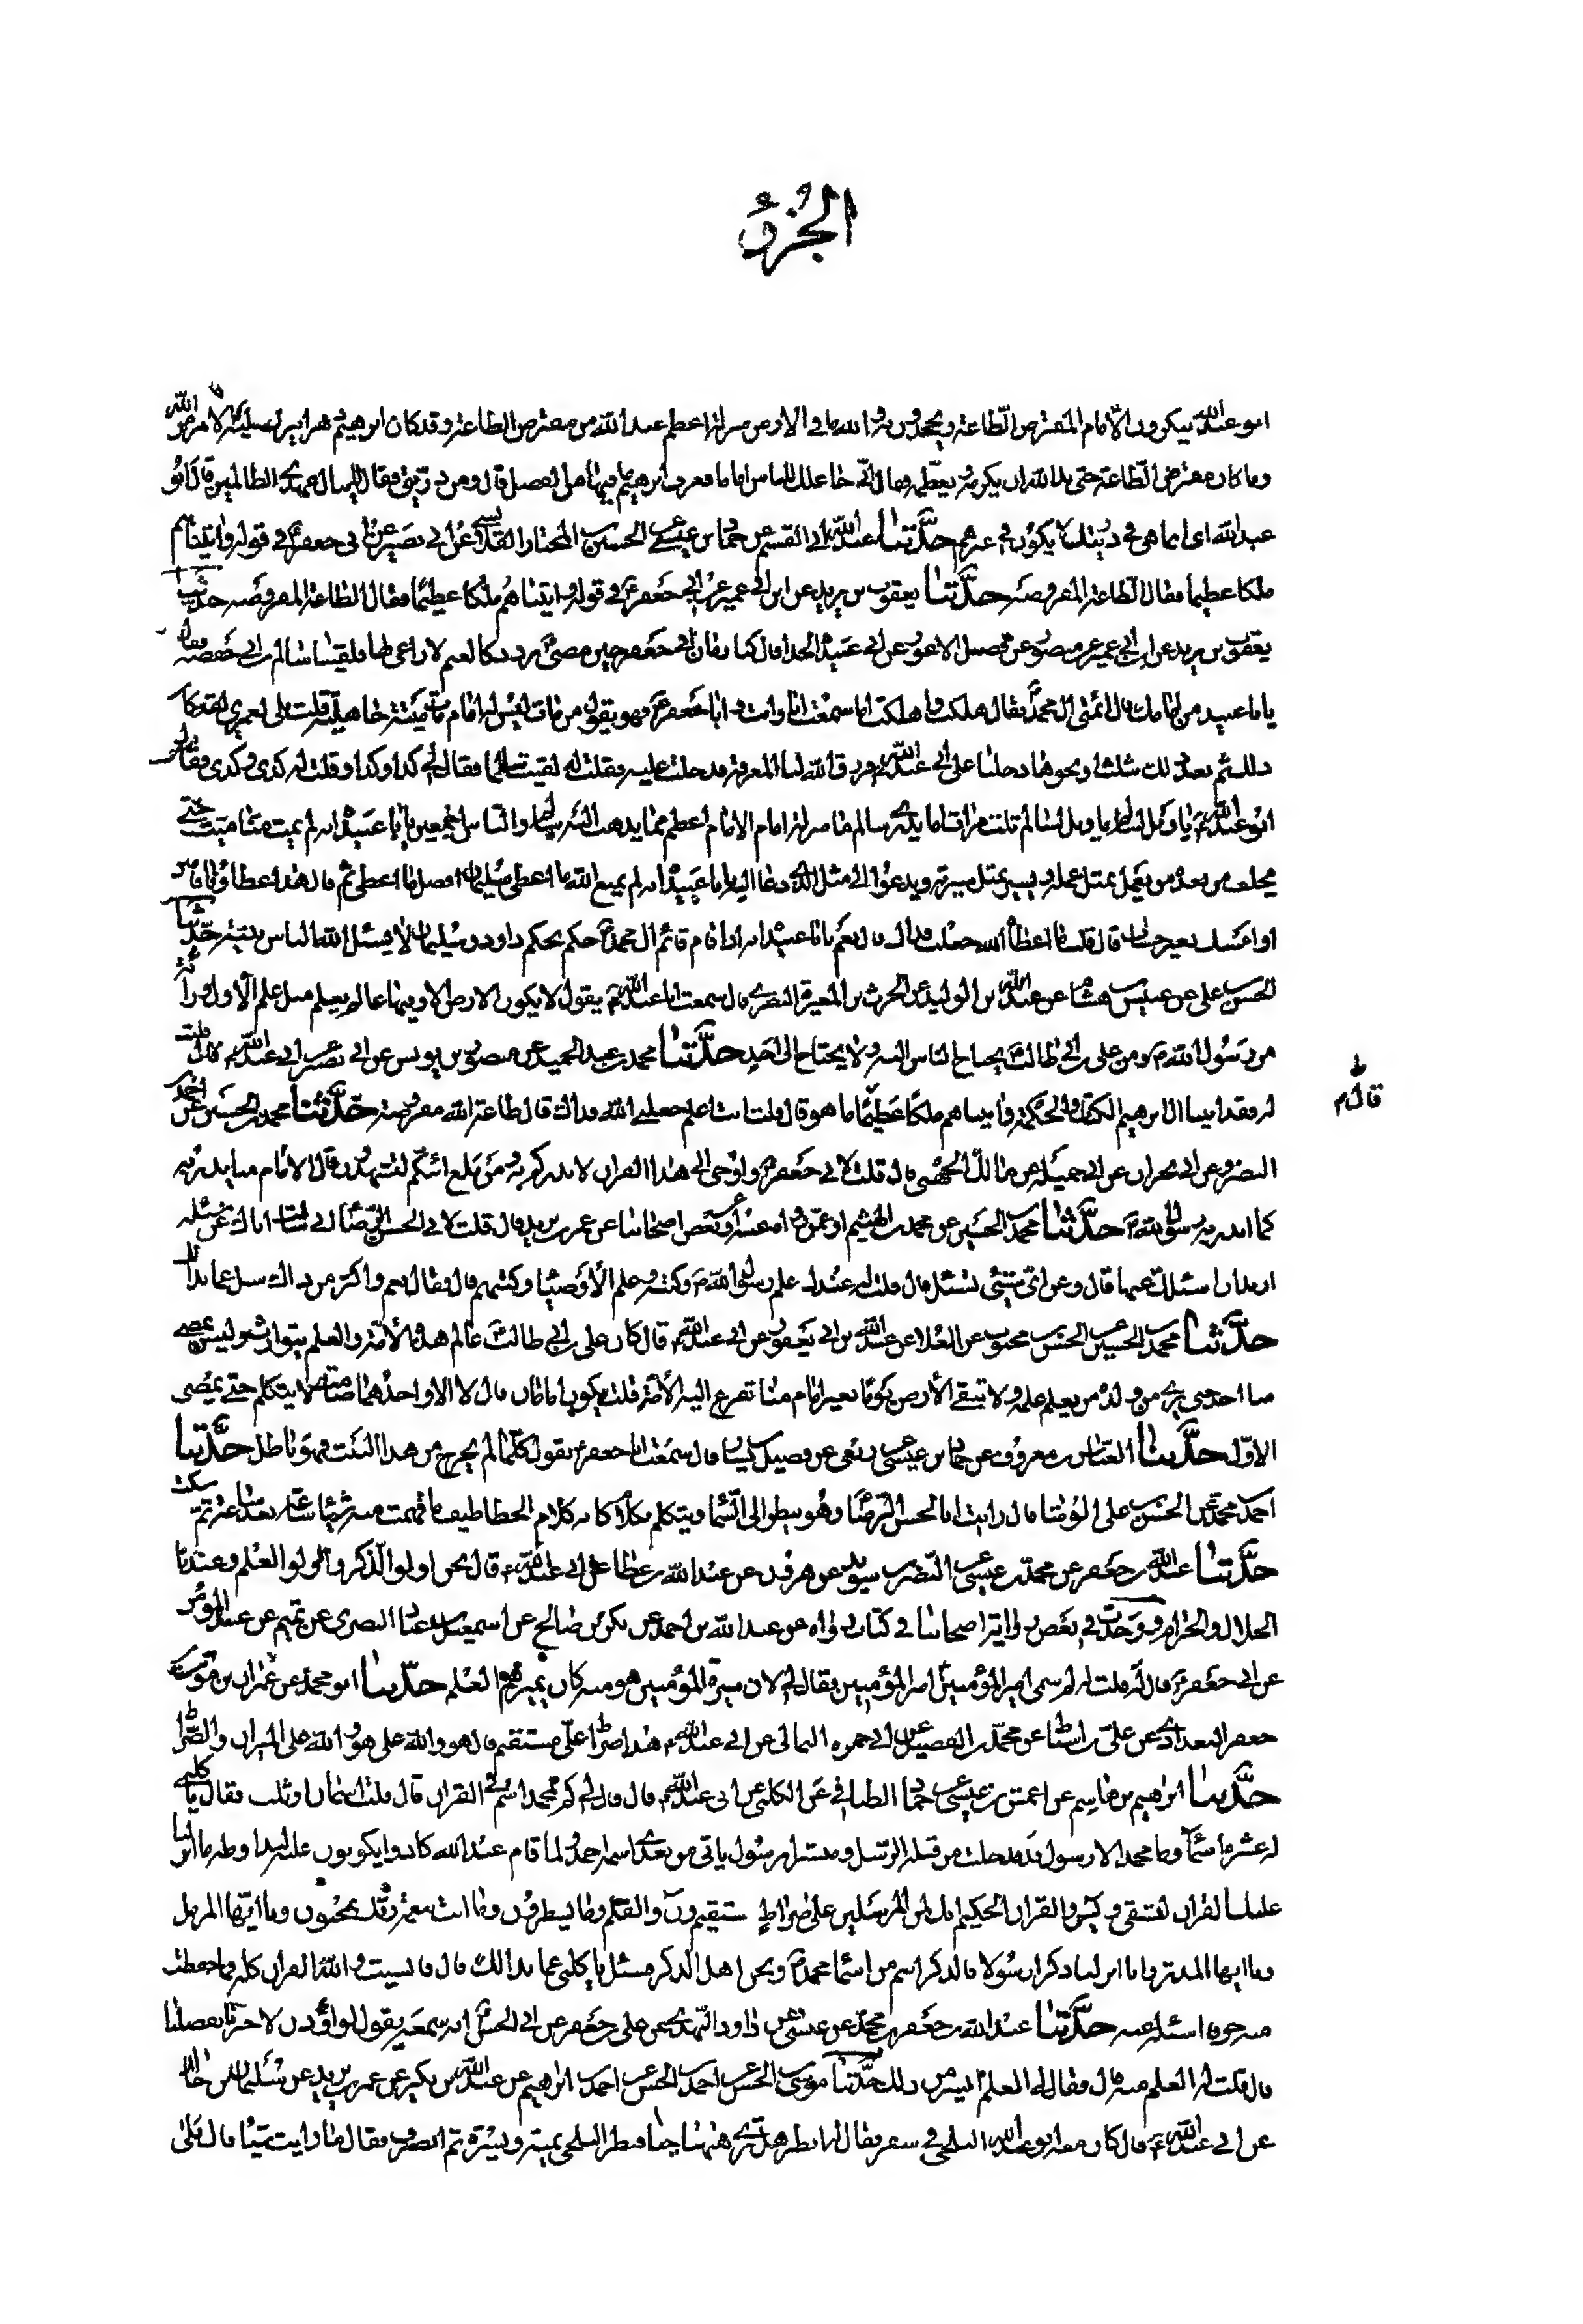 الجزؤ
ابو عبد الله ينكرون الامام المفترض الطاعة ويجحدونه والله ما في الارض منزلة اعظم عند الله من مفترض الطاعة وقد كان ابرهيم
وما كان مفترض الطاعة حتى بدا لله ان يكرمه ويعظمه فقال اني جاعلك للناس اماما فعرف ابرهيم ما فيها من الفضل قال ومن ذريتي فقال لا ينال عهدي الظالمين قال ابو
عبد الله اي انما هي في ذريتك لا يكون في غيرهم حدثنا عبد الله القسم عن حماد بن عيسى الحسين المختار عن ابي بصير عن ابي جعفر في قوله واتيناهم
ملكا عظيما فقال الطاعة المفروضة حدثنا يعقوب بن يزيد عن ابن ابي عمير عن ابي جعفر في قوله واتيناهم ملكا عظيما فقال الطاعة المفروضة حدثنا
يعقوب بن يزيد عن ابن ابي عمير عن منصور عن فضيل الاعور عن ابي عبيدة الحذا قال كنا زمان ابي جعفر حين مضى نردد كالغنم لا راعي لها فلقينا سالم بن ابي حفصة فقال
يا با عبيدة من امامك قال ائمتي ال محمد فقال هلكت واهلكت اما سمعت انا وانت ابا جعفر وهو يقول من مات ليس له امام مات ميتة جاهلية قلت بلى لعمري لقد كان
ذلك ثم بعد ذلك بثلث او نحوها دخلنا على ابي عبد الله فرزق الله لنا المعرفة فدخلت عليه فقلت له لقيت سالما فقال لي كذا وكذا وقلت له كذى وكذى فقال
ابو عبد الله يا ويل لسالم يا ويل لسالم ثلث مرات اما يدري سالم ما منزلة الامام الامام اعظم مما يذهب اليه سالم والناس اجمعين يا با عبيدة انه لم يمت منا ميت حتى
يخلف من بعده من يعمل بمثل عمله ويسير بمثل سيرته ويدعوا الى مثل الذي دعا اليه يا با عبيدة انه لم يمنع الله ما اعطى سليمان افضل ما اعطى ثم قال هذا عطاؤنا فامنن
او امسك بغير حساب قال قلت ما اعطاه الله جعلت فداك قال نعم يا با عبيدة انه اذا قام قائم ال محمد حكم بحكم داود وسليمان لا يسئل الناس بينة حدثنا
الحسن علي عن عبيس هشام عن عبد الله بن الوليد عن الحرث بن المغيرة النضري قال سمعت ابا عبد الله يقول لا يكون الارض الا وفيها عالم يعلم مثل علم الاول وراثة
من رسول الله ومن علي بن ابي طالب يحتاج الناس اليه ولا يحتاج الى احد حدثنا محمد بن عبد الحميد عن منصور بن يونس عن ابي بصير عن ابي عبد الله قال قلت
له فقد اتينا ال ابرهيم الكتاب والحكمة واتيناهم ملكا عظيما ما هو قال قلت انت اعلم جعلني الله فداك قال طاعة الله مفروضة حدثنا محمد بن الحسين عن احمد
النضر عن ابي بحران عن ابي جميلة عن مالك الجهني قال قلت لابي جعفر واوحي الي هذا القران لانذركم به ومن بلغ ائنكم لتشهدون قال الامام منا ينذر به
كما انذر به رسول الله حدثنا محمد بن الحسين عن محمد بن الهيثم او عمن بعض اصحابنا عن عمر بن يزيد قال قلت لابي الحسن الرضا اني سالت اباك عن مسئلة
اريد ان اسئلك عنها قال وعن اي شيء تسئل قال قلت له عندك علم رسول الله وكتبه وعلم الاوصيا وكتبهم قال فقال نعم واكثر من ذاك سل عما بدا لك
حدثنا محمد بن الحسين عن الحسن بن محبوب عن العلا عن عبد الله بن ابي يعفور عن ابي عبد الله قال كان علي بن ابي طالب عالم هذه الامة والعلم يتوارث وليس يمضي
منا احد حتى يرى من ولده من يعلم علمه ولا تبقى الارض يوما بغير امام منا تفزع اليه الامة قلت يكون امامان قال لا الا واحدهما صامت لا يتكلم حتى يمضي
الاول حدثنا العباس بن معروف عن حماد بن عيسى ربعي عن فضيل بن يسار قال سمعت ابا جعفر يقول كلما لم يخرج من هذا البيت فهو باطل حدثنا
احمد محمد عن الحسن علي الوشا قال رايت ابا الحسن الرضا وهو ينظر الى السما ويتكلم بكلام كانه كلام الخطاطيف ما فهمت منه شيئا ساعة بعد ساعة ثم سكت
حدثنا عبد الله بن جعفر عن محمد بن عيسى النضر بن سويد عن عبد الله بن عطا عن ابي عبد الله قال نحن اولوا الذكر واولوا العلم وعندنا
الحلال والحرام ووجدت في بعض رواية اصحابنا في كتاب رواه عن عبد الله بن احمد عن بكر بن صالح عن اسمعيل بن عباد البصري عن تميم عن عبد المؤمن
عن ابي جعفر قال قلت له لم سمي امير المؤمنين امير المؤمنين فقال لي لان ميرة المؤمنين هو منه كان يميرهم العلم حدثنا ابو محمد عن عمران بن موسى
جعفر البغدادي عن علي بن اسباط عن محمد بن الفضيل عن ابي حمزه الثمالي عن ابي عبد الله هذا صراط علي مستقيم قال هو والله علي هو والله علي الميزان والصراط
حدثنا ابرهيم بن هاشم عن اعمش بن عيسى حماد الطيافي عن الكلبي عن ابي عبد الله قال قال لي كم لمحمد اسم في القران قال قلت اسمان او ثلث فقال يا كلبي
له عشره اسما وما محمد الا رسول قد خلت من قبله الرسل ومبشرا برسول ياتي من بعدي اسمه احمد ولما قام عبد الله كادوا يكونون عليه لبدا وطه ما انزلنا
عليك القران لتشقى ويس والقران الحكيم انك لمن المرسلين على صراط مستقيم ون والقلم وما يسطرون وما انت بنعمة ربك بمجنون ويا ايها المزمل
ويا ايها المدثر وانا انزلنا ذكرا رسولا فالذكر اسم من اسما محمد ونحن اهل الذكر فسئل يا كلبي عما بدا لك قال فانسيت والله القران كله فما حفظت
منه حرفا اسئله عنه حدثنا عبد الله بن جعفر عن محمد عن عيسى عن داود النهدي عن علي بن جعفر عن ابي الحسن انه سمعه يقول لو اذن لاخبرنا بفضلنا
قال قلت له العلم منه قال فقال لي العلم ايسر من ذلك حدثنا موسى الحسن عن احمد الحسن عن احمد ابرهيم عن عبد الله بن بكير عن عمر بن يزيد عن سليمان بن خالد
عن ابي عبد الله قال كان معه ابو عبد الله البلخي في سفر فقال له انظر هل ترى هيهنا جبا فنظر البلخي يمنة ويسرة ثم انصرف فقال ما رايت شيئا قال بلى